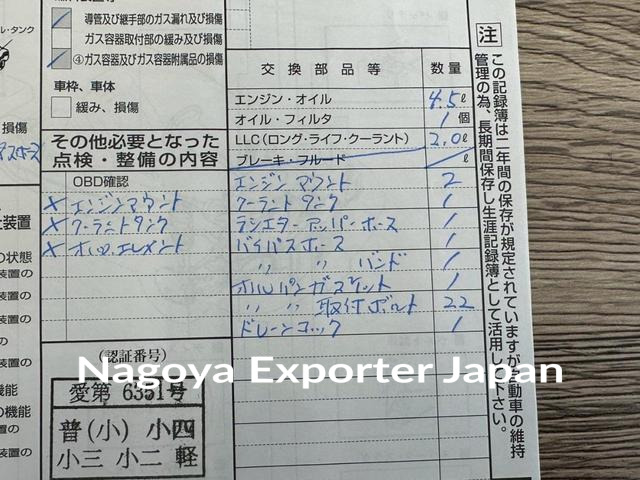 導管及び継手部のガス漏れ及び損傷
ガス容器取付部の緩み及び損傷
④ガス容器及びガス容器附属品の損傷
車枠、車体
緩み、損傷
その他必要となった
点検・整備の内容
OBD確認
× エンジンマウント
× クーラントタンク
× オイルエレメント
(認証番号)
愛第 6351号
普(小) 小四
小三 小二 軽
交換部品等 数量
エンジン・オイル 4.5ℓ
オイル・フィルタ 1個
LLC(ロング・ライフ・クーラント) 2.0ℓ
ブレーキ・フルード ℓ
エンジンマウント 2
クーラントタンク 1
ラジエターアッパーホース 1
バイパスホース 1
〃 〃 バンド 1
オイルパンガスケット 1
〃 〃 取付ボルト 22
ドレーンコック 1
注
この記録簿は二年間の保存が規定されていますが自動車の維持
管理の為、長期間保存し生涯記録簿として活用し下さい。
ル・タンク
損傷
装置
の状態
装置の
装置の
機能
の機能
装置の
Nagoya Exporter Japan